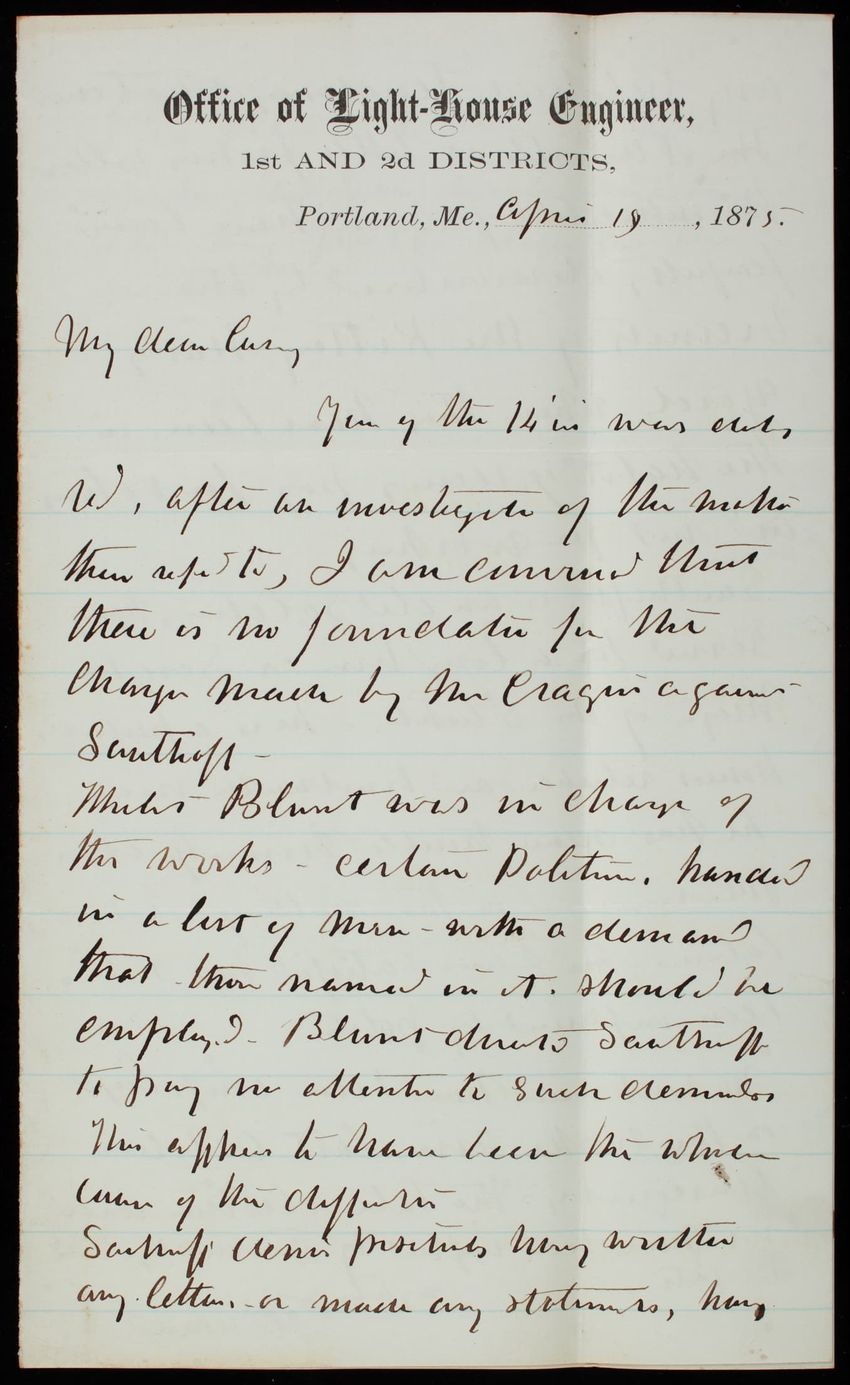 Office of Light-House Engineer,
1st AND 2d DISTRICTS,
Portland, Me., April 19, 1875.
My dear Casey
of the 14 was
after an investigation of the matter
then to, I am convinced that
there is no foundation for the
charges made by Mr Cragin against
Southoff -
Whilst Blunt was in charge of
the works - certain Politicians handed
in a list of men - with a demand
that those named in it should be
employed - Blunt directed Southoff
to pay no attention to such demands
This appears to have been the whole
cause of the difficulty
Southoff denies positively having written
any letters - or made any statements, having